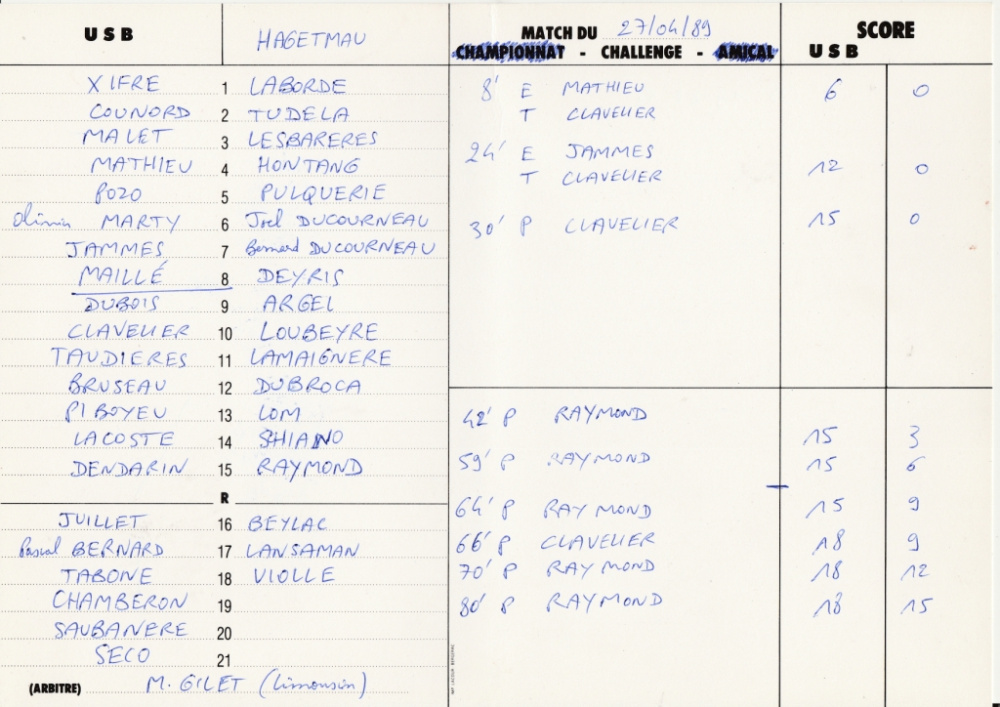 USB HAGETMAU
MATCH DU 27/04/89 SCORE
CHAMPIONNAT - CHALLENGE - AMICAL USB
XIFRE 1 LABORDE
COUNORD 2 TUDELA
MALET 3 LESBARERES
MATHIEU 4 HONTANG
POZO 5 PULQUERIE
MARTY 6 Joel DUCOURNEAU
JAMMES 7 Bernard DUCOURNEAU
MAILLÉ 8 DEYRIS
DUBOIS 9 ARGEL
CLAVELIER 10 LOUBEYRE
TAUDIERES 11 LAMAIGNERE
BRUSEAU 12 DUBROCA
PIBOYEU 13 LOM
LACOSTE 14 SHIANO
DENDARIN 15 RAYMOND
R
JUILLET 16 BEYLAC
Pascal BERNARD 17 LANSAMAN
TABONE 18 VIOLLE
CHAMBERON 19
SAUBANERE 20
SECO 21
(ARBITRE) M. GILET (Limousin)
8' E MATHIEU 6 0
T CLAVELIER
24' E JAMMES
T CLAVELIER 12 0
30' P CLAVELIER 15 0
42' P RAYMOND 15 3
59' P RAYMOND 15 6
64' P RAYMOND 15 9
66' P CLAVELIER 18 9
70' P RAYMOND 18 12
80' P RAYMOND 18 15